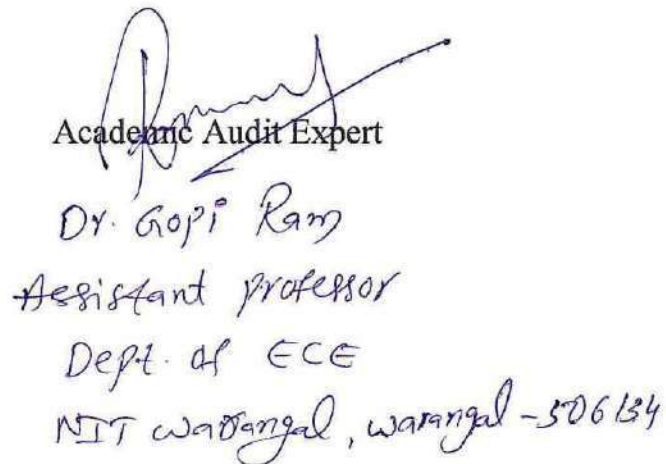 Academic Audit Expert
Dr. Gopi Ram
Assistant professor
Dept. of ECE
NIT Warangal, warangal - 506134